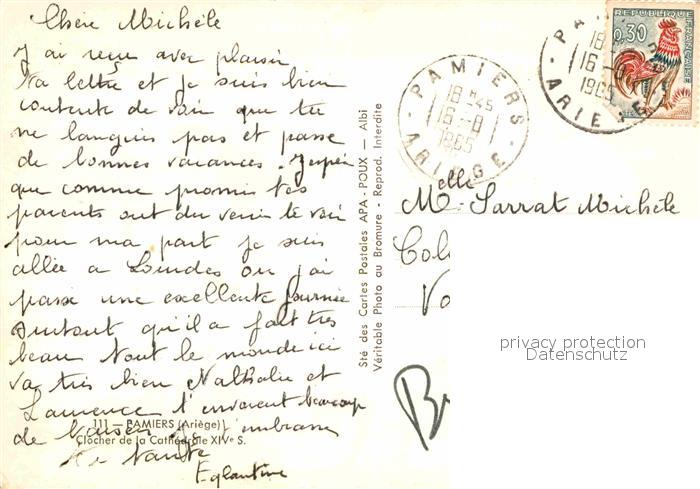 Chère Michèle
J'ai reçu avec plaisir
Ta lettre et je suis bien
contente de voir que tu
ne languis pas et passe
de bonnes vacances. J'espère
que comme promis tes
parents ont du venir te voir
pour ma part je suis
allée a Lourdes ou j'ai
passé une excellente journée
Surtout qu'il a fait très
beau Tout le monde ici
va très bien Nathalie et
Laurence t'envoient beaucoup
de baisers Je t'embrasse
Ta tante
Eglantine
111 — PAMIERS (Ariège)
Clocher de la Cathédrale XIVe S.
Sté des Cartes Postales APA-POUX — Albi
Véritable Photo au Bromure - Reprod. Interdite
PAMIERS
18 H 45
16-8
1965
ARIEGE
PA
18
16-
1965
ARIE
REPUBLIQUE FRANÇAISE
0,30
Melle Sarrat Michèle
Col
Va
privacy protection
Datenschutz